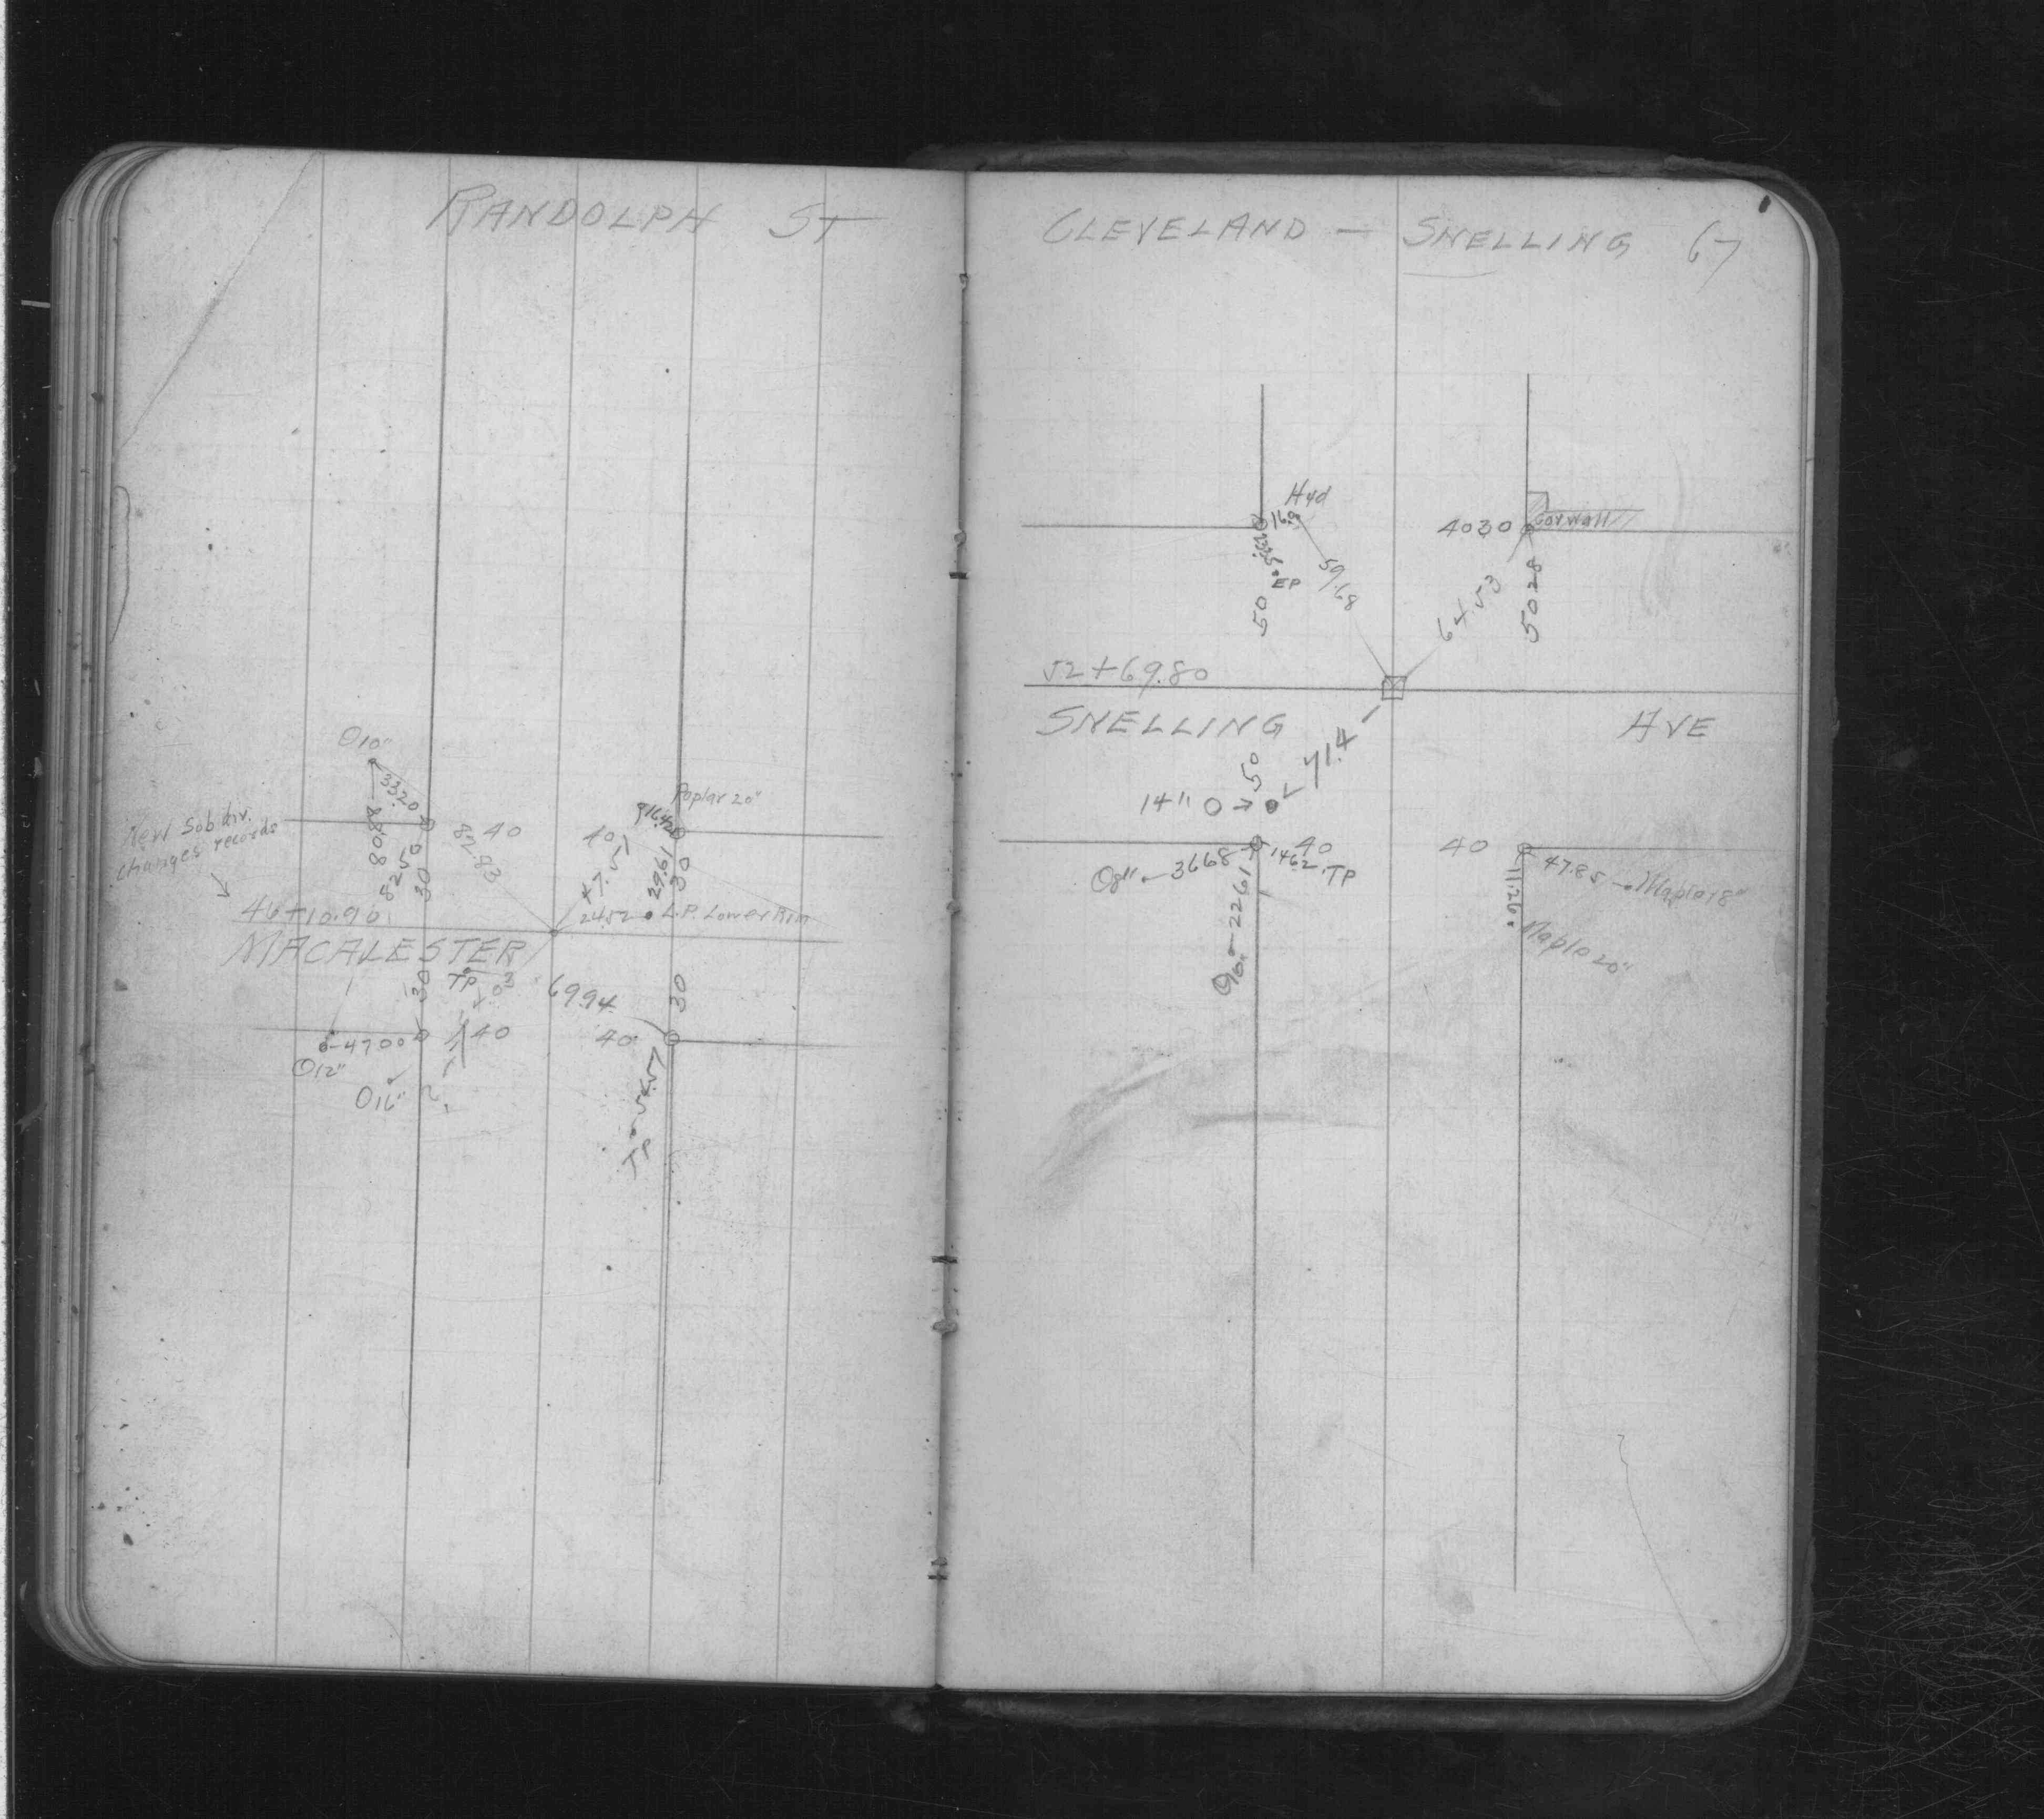 RANDOLPH ST
O 10"
33.20
80.88
52.50
30
New Subdiv.
changes records
82.83
40
Poplar 20"
16.42
40
47.57
29.61
30
46+10.90
24.52 L.P. Lower Rim
MACALESTER
30
TP
69.94
30
47.00
40
40
O 12"
O 16"
54.57
TP
CLEVELAND — SNELLING 67
Hyd
16.9
EP
50
59.68
40 30
Cor Wall
64.53
50 28
52+69.80
SNELLING AVE
71.4
50
14"
40
O 8" 36.68
14.62 TP
22.61
40
47.85 Maple 18"
Maple 20"